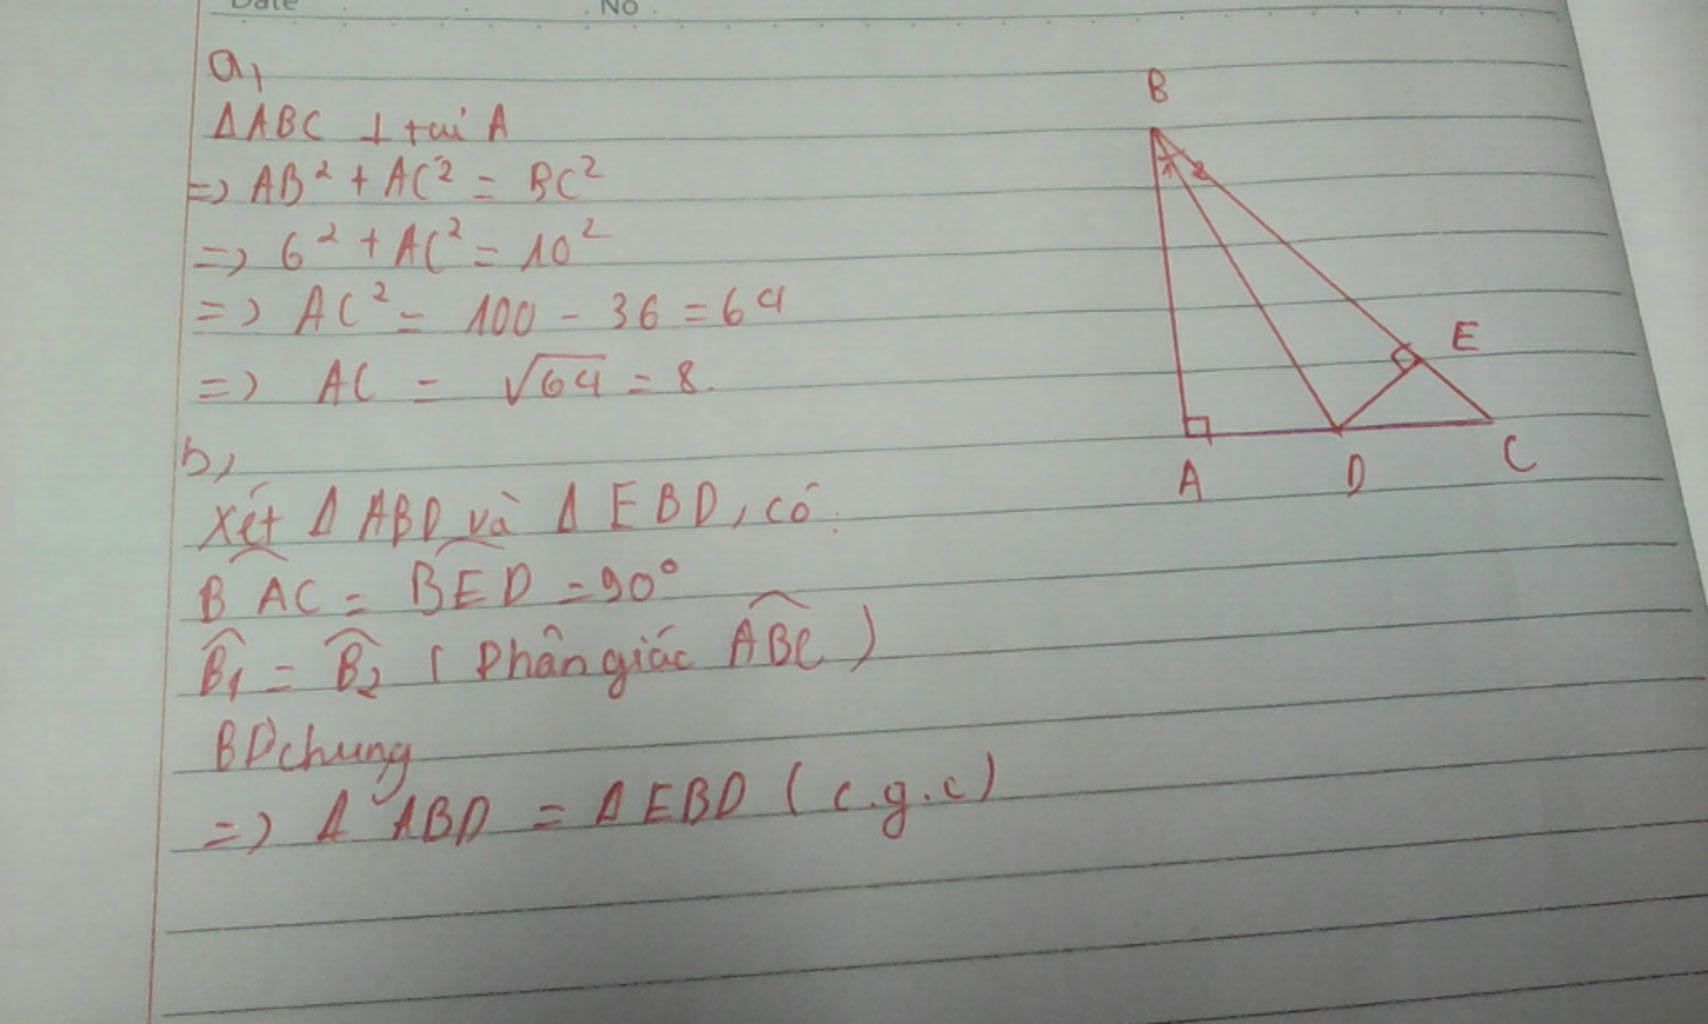 Date No
a,
ΔABC ⊥ tại A
=> AB² + AC² = BC²
=> 6² + AC² = 10²
=> AC² = 100 - 36 = 64
=> AC = √64 = 8.
b,
Xét Δ ABD và Δ EBD, có:
B̂AC = B̂ED = 90°
B̂₁ = B̂₂ ( Phân giác ÂBC )
BD chung
=> Δ ABD = Δ EBD ( c.g.c )
B
1 2
E
A D C